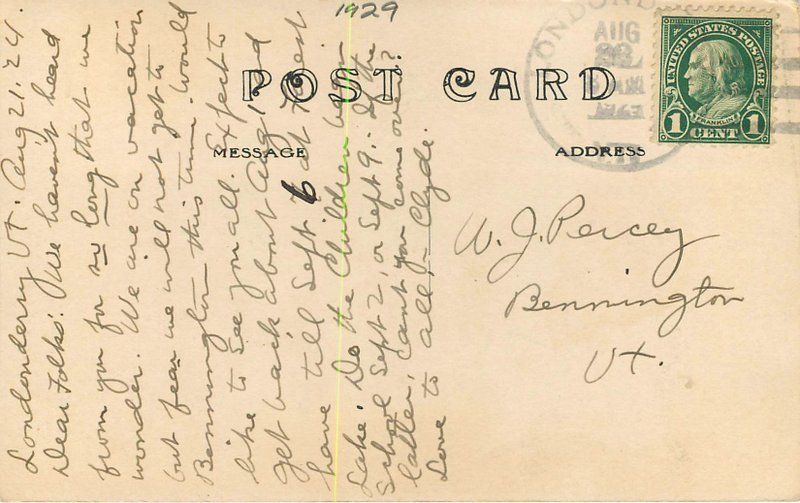 1929
POST CARD
MESSAGE
ADDRESS
LONDOND
AUG
UNITED STATES POSTAGE
FRANKLIN
1 CENT 1
6
Londonderry Vt. Aug 21. 24.
Dear Folks: We haven't heard
from you for so long that we
wonder. We are on vacation
but fear we will not get to
Bennington this time. Would
like to see you all. Expect to
get back about Aug
have till Sept at Forest
Lake. Do the Children begin
School Sept 2, or Sept 9. If the
latter, can't you come over?
Love to all, – Clyde.
W. J. Percey
Bennington
Vt.